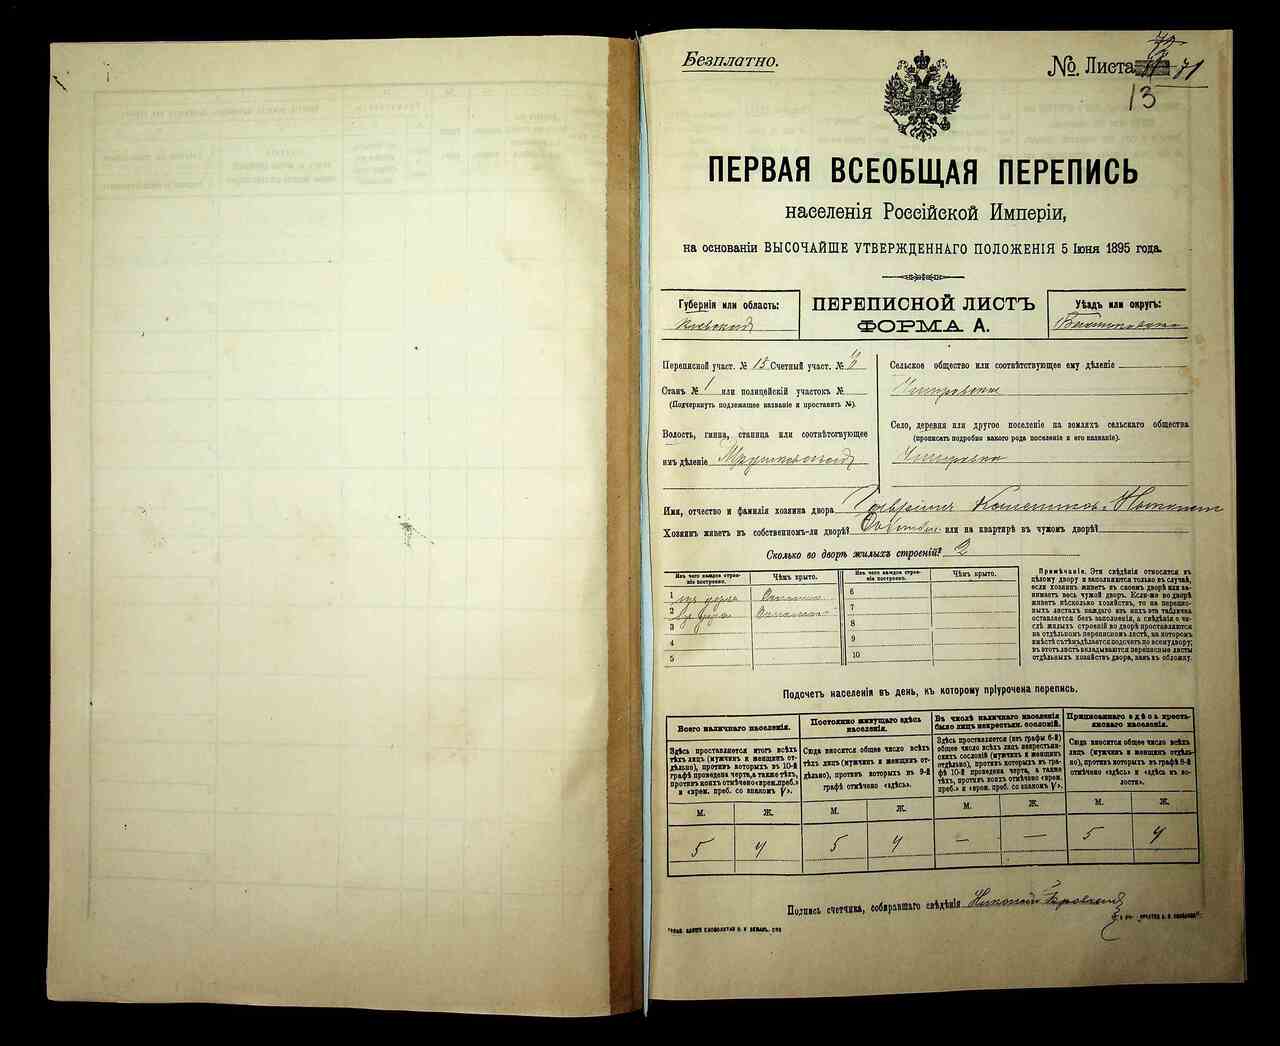 Безплатно.
№ Листа 71
13
ПЕРВАЯ ВСЕОБЩАЯ ПЕРЕПИСЬ
населенія Россійской Имперіи,
на основаніи ВЫСОЧАЙШЕ УТВЕРЖДЕННАГО ПОЛОЖЕНІЯ 5 Іюня 1895 года.
Губернія или область:
Кіевская
ПЕРЕПИСНОЙ ЛИСТЪ
ФОРМА А.
Уѣздъ или округъ:
Переписной участ. № 15 Счетный участ. №
Станъ № 1 или полицейскій участокъ №
(Подчеркнуть подлежащее названіе и проставить №).
Волость, гмина, станица или соотвѣтствующее
имъ дѣленіе
Сельское общество или соотвѣтствующее ему дѣленіе
Село, деревня или другое поселеніе на земляхъ сельскаго общества
(прописать подробно какого рода поселеніе и его названіе).
Имя, отчество и фамилія хозяина двора
Хозяинъ живетъ въ собственномъ-ли дворѣ? или на квартирѣ въ чужомъ дворѣ?
Сколько во дворѣ жилыхъ строеній? 2
Изъ чего каждое строе-
ніе построено.
Чѣмъ крыто.
Изъ чего каждое строе-
ніе построено.
Чѣмъ крыто.
1
2
3
4
5
6
7
8
9
10
Примѣчаніе. Эти свѣдѣнія относятся къ
цѣлому двору и заполняются только въ случаѣ,
если хозяинъ живетъ въ своемъ дворѣ или за-
нимаетъ весь чужой дворъ. Если-же во дворѣ
живетъ нѣсколько хозяйствъ, то на перепис-
ныхъ листахъ каждаго изъ нихъ эта табличка
оставляется безъ заполненія, а свѣдѣнія о чи-
слѣ жилыхъ строеній во дворѣ проставляются
на отдѣльномъ переписномъ листѣ, на которомъ
вмѣстѣ съ тѣмъ дѣлается подсчетъ по всему двору;
въ этотъ листъ вкладываются переписные листы
отдѣльныхъ хозяйствъ двора, какъ въ обложку.
Подсчетъ населенія въ день, къ которому пріурочена перепись.
Всего наличнаго населенія.
Постоянно живущаго здѣсь
населенія.
Въ числѣ наличнаго населенія
было лицъ некрестьян. сословій.
Приписаннаго здѣсь кресть-
янскаго населенія.
Здѣсь проставляется итогъ всѣхъ
тѣхъ лицъ (мужчинъ и женщинъ от-
дѣльно), противъ которыхъ въ 10-й
графѣ проведена черта, а также тѣхъ,
противъ коихъ отмѣчено «врем. преб.»
и «врем. преб. со знакомъ V».
Сюда вносится общее число всѣхъ
тѣхъ лицъ (мужчинъ и женщинъ от-
дѣльно), противъ которыхъ въ 9-й
графѣ отмѣчено «здѣсь».
Здѣсь проставляется (изъ графы 6-й)
общее число всѣхъ лицъ некрестьян-
скихъ сословій (мужчинъ и женщинъ
отдѣльно), противъ которыхъ въ гра-
фѣ 10-й проведена черта, а также
тѣхъ, противъ коихъ отмѣчено «врем.
преб.» и «врем. преб. со знакомъ V».
Сюда вносится общее число всѣхъ
лицъ (мужчинъ и женщинъ отдѣль-
но), противъ которыхъ въ графѣ 8-й
отмѣчено «здѣсь» и «здѣсь въ во-
лости».
М. Ж. М. Ж. М. Ж. М. Ж.
5 4 5 4 — — 5 4
Подпись счетчика, собиравшаго свѣдѣнія Николай